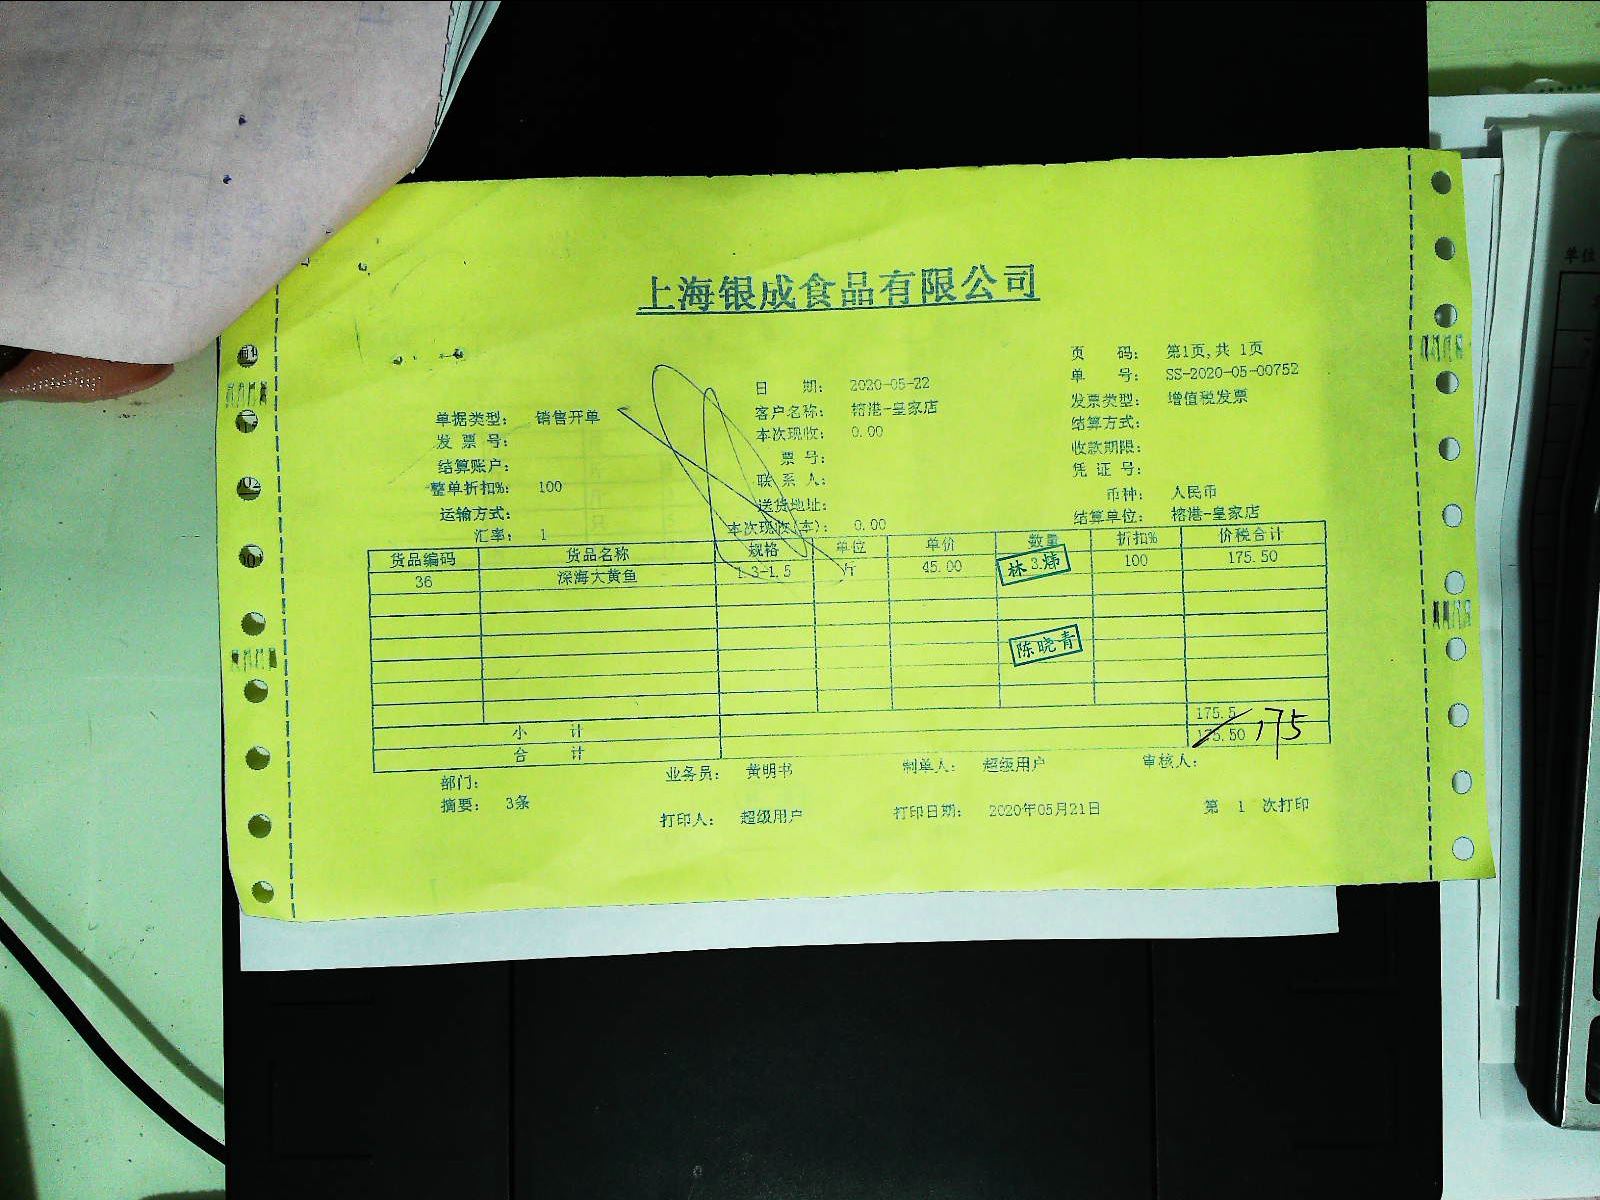 上海银成食品有限公司
页 码： 第1页,共 1页
单 号： SS-2020-05-00752
日 期： 2020-05-22
发票类型： 增值税发票
单据类型： 销售开单
客户名称： 榕港-皇家店
结算方式：
发 票 号：
本次现收： 0.00
收款期限：
结算账户：
票 号：
凭 证 号：
整单折扣%： 100
联 系 人：
币种： 人民币
运输方式：
送货地址：
结算单位： 榕港-皇家店
汇率： 1
本次现收(本)： 0.00
货品编码 货品名称 规格 单位 单价 数量 折扣% 价税合计
36 深海大黄鱼 1.3-1.5 斤 45.00 100 175.50
林 炜
陈晓青
小 计 175.5
合 计 175.50 175
部门： 业务员： 黄明书 制单人： 超级用户 审核人：
摘要： 3条
打印人： 超级用户 打印日期： 2020年05月21日 第 1 次打印
单位